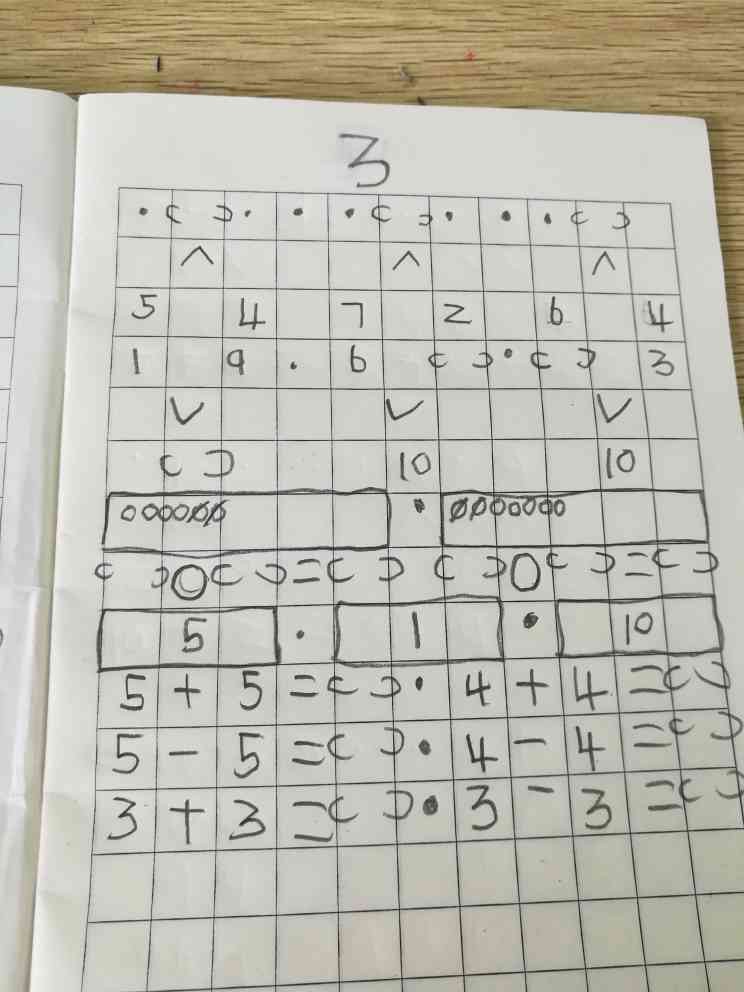 3
·( )· · ·( )· · ·( )
∧ ∧ ∧
5 4 7 2 6 4
1 9 . 6 ( )·( ) 3
∨ ∨ ∨
( ) 10 10
000000 · 00000000
( )○( )=( ) ( )○( )=( )
5 · 1 · 10
5 + 5 =( )· 4 + 4 =( )
5 - 5 =( )· 4 - 4 =( )
3 + 3 =( )· 3 - 3 =( )